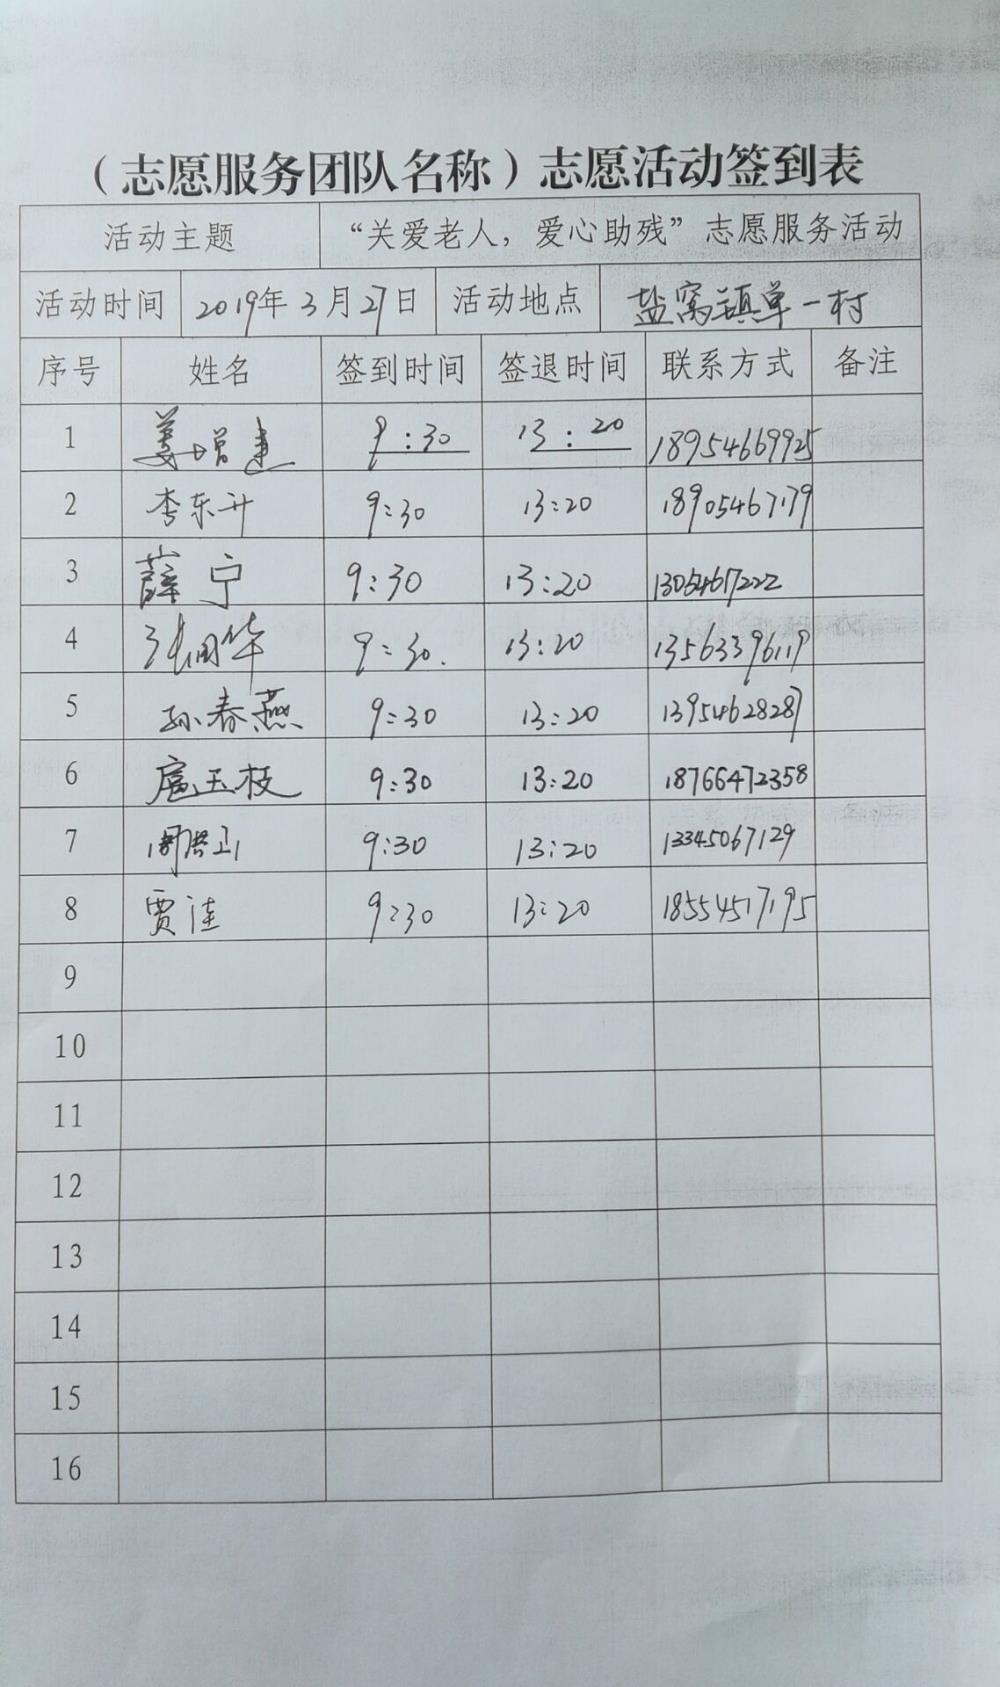 （志愿服务团队名称）志愿活动签到表
活动主题 “关爱老人，爱心助残”志愿服务活动
活动时间 2019年3月27日 活动地点 盐窝镇单一村
序号 姓名 签到时间 签退时间 联系方式 备注
1 姜增建 9:30 13:20 18954669925
2 李东升 9:30 13:20 18905467179
3 薛宁 9:30 13:20
4 9:30. 13:20 13563396119
5 孙春燕 9:30 13:20 13954628287
6 扈玉枝 9:30 13:20 18766472358
7 9:30 13:20 13345067129
8 贾佳 9:30 13:20 18554517195
9
10
11
12
13
14
15
16